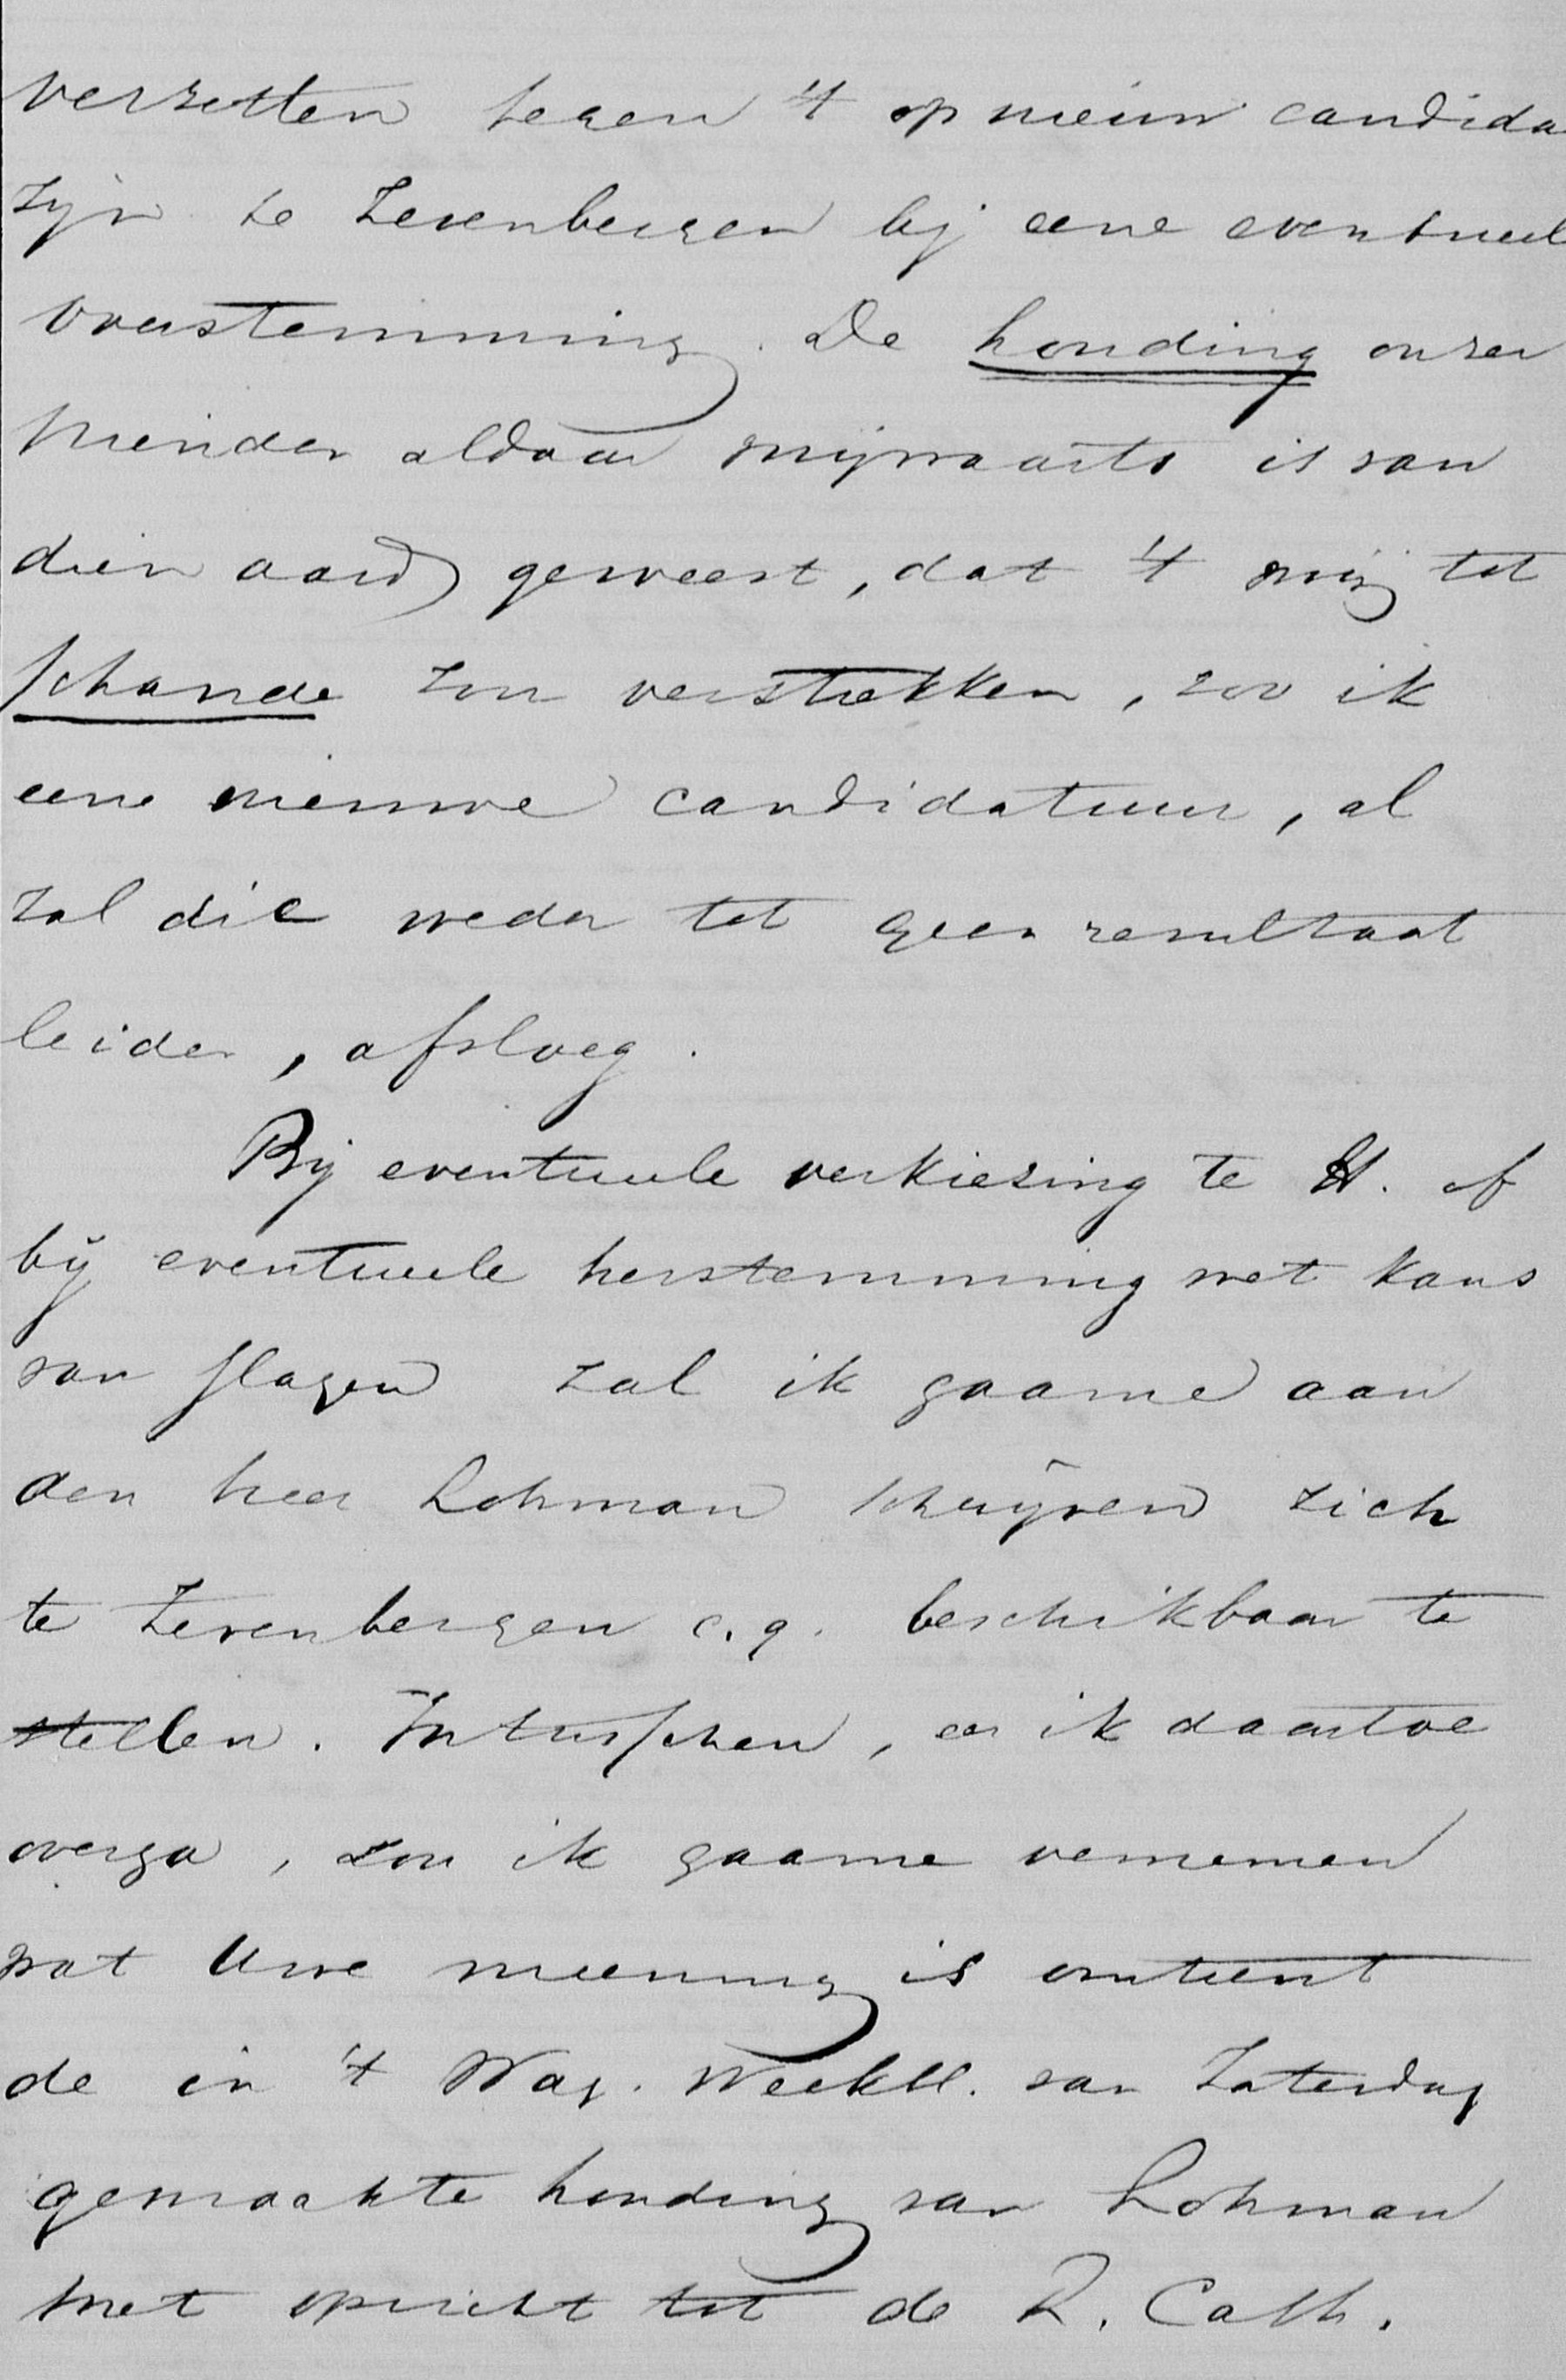 verzetten tegen 't op nieuw candida
zijn te Zevenbergen bij eene eventueel
overstemming. De houding onzer
vrienden aldaar mijwaarts is van
dien aard geweest, dat 't mij tot
schande zou verstrekken, zoo ik
eene nieuwe candidatuur, al
zal die weder tot geen resultaat
leiden, afsloeg.
Bij eventueele verkiezing te H. of
bij eventueele herstemming met kans
van slagen zal ik gaarne aan
den heer Lohman schrijven zich
te Zevenbergen c.q. beschikbaar te
stellen. Intusschen, eer ik daartoe
overga, zou ik gaarne vernemen
wat Uwe meening is omtrent
de in 't Wag. Weekbl. van Zaterdag
gemaakte houding van Lohman
met opzicht tot de R. Cath.